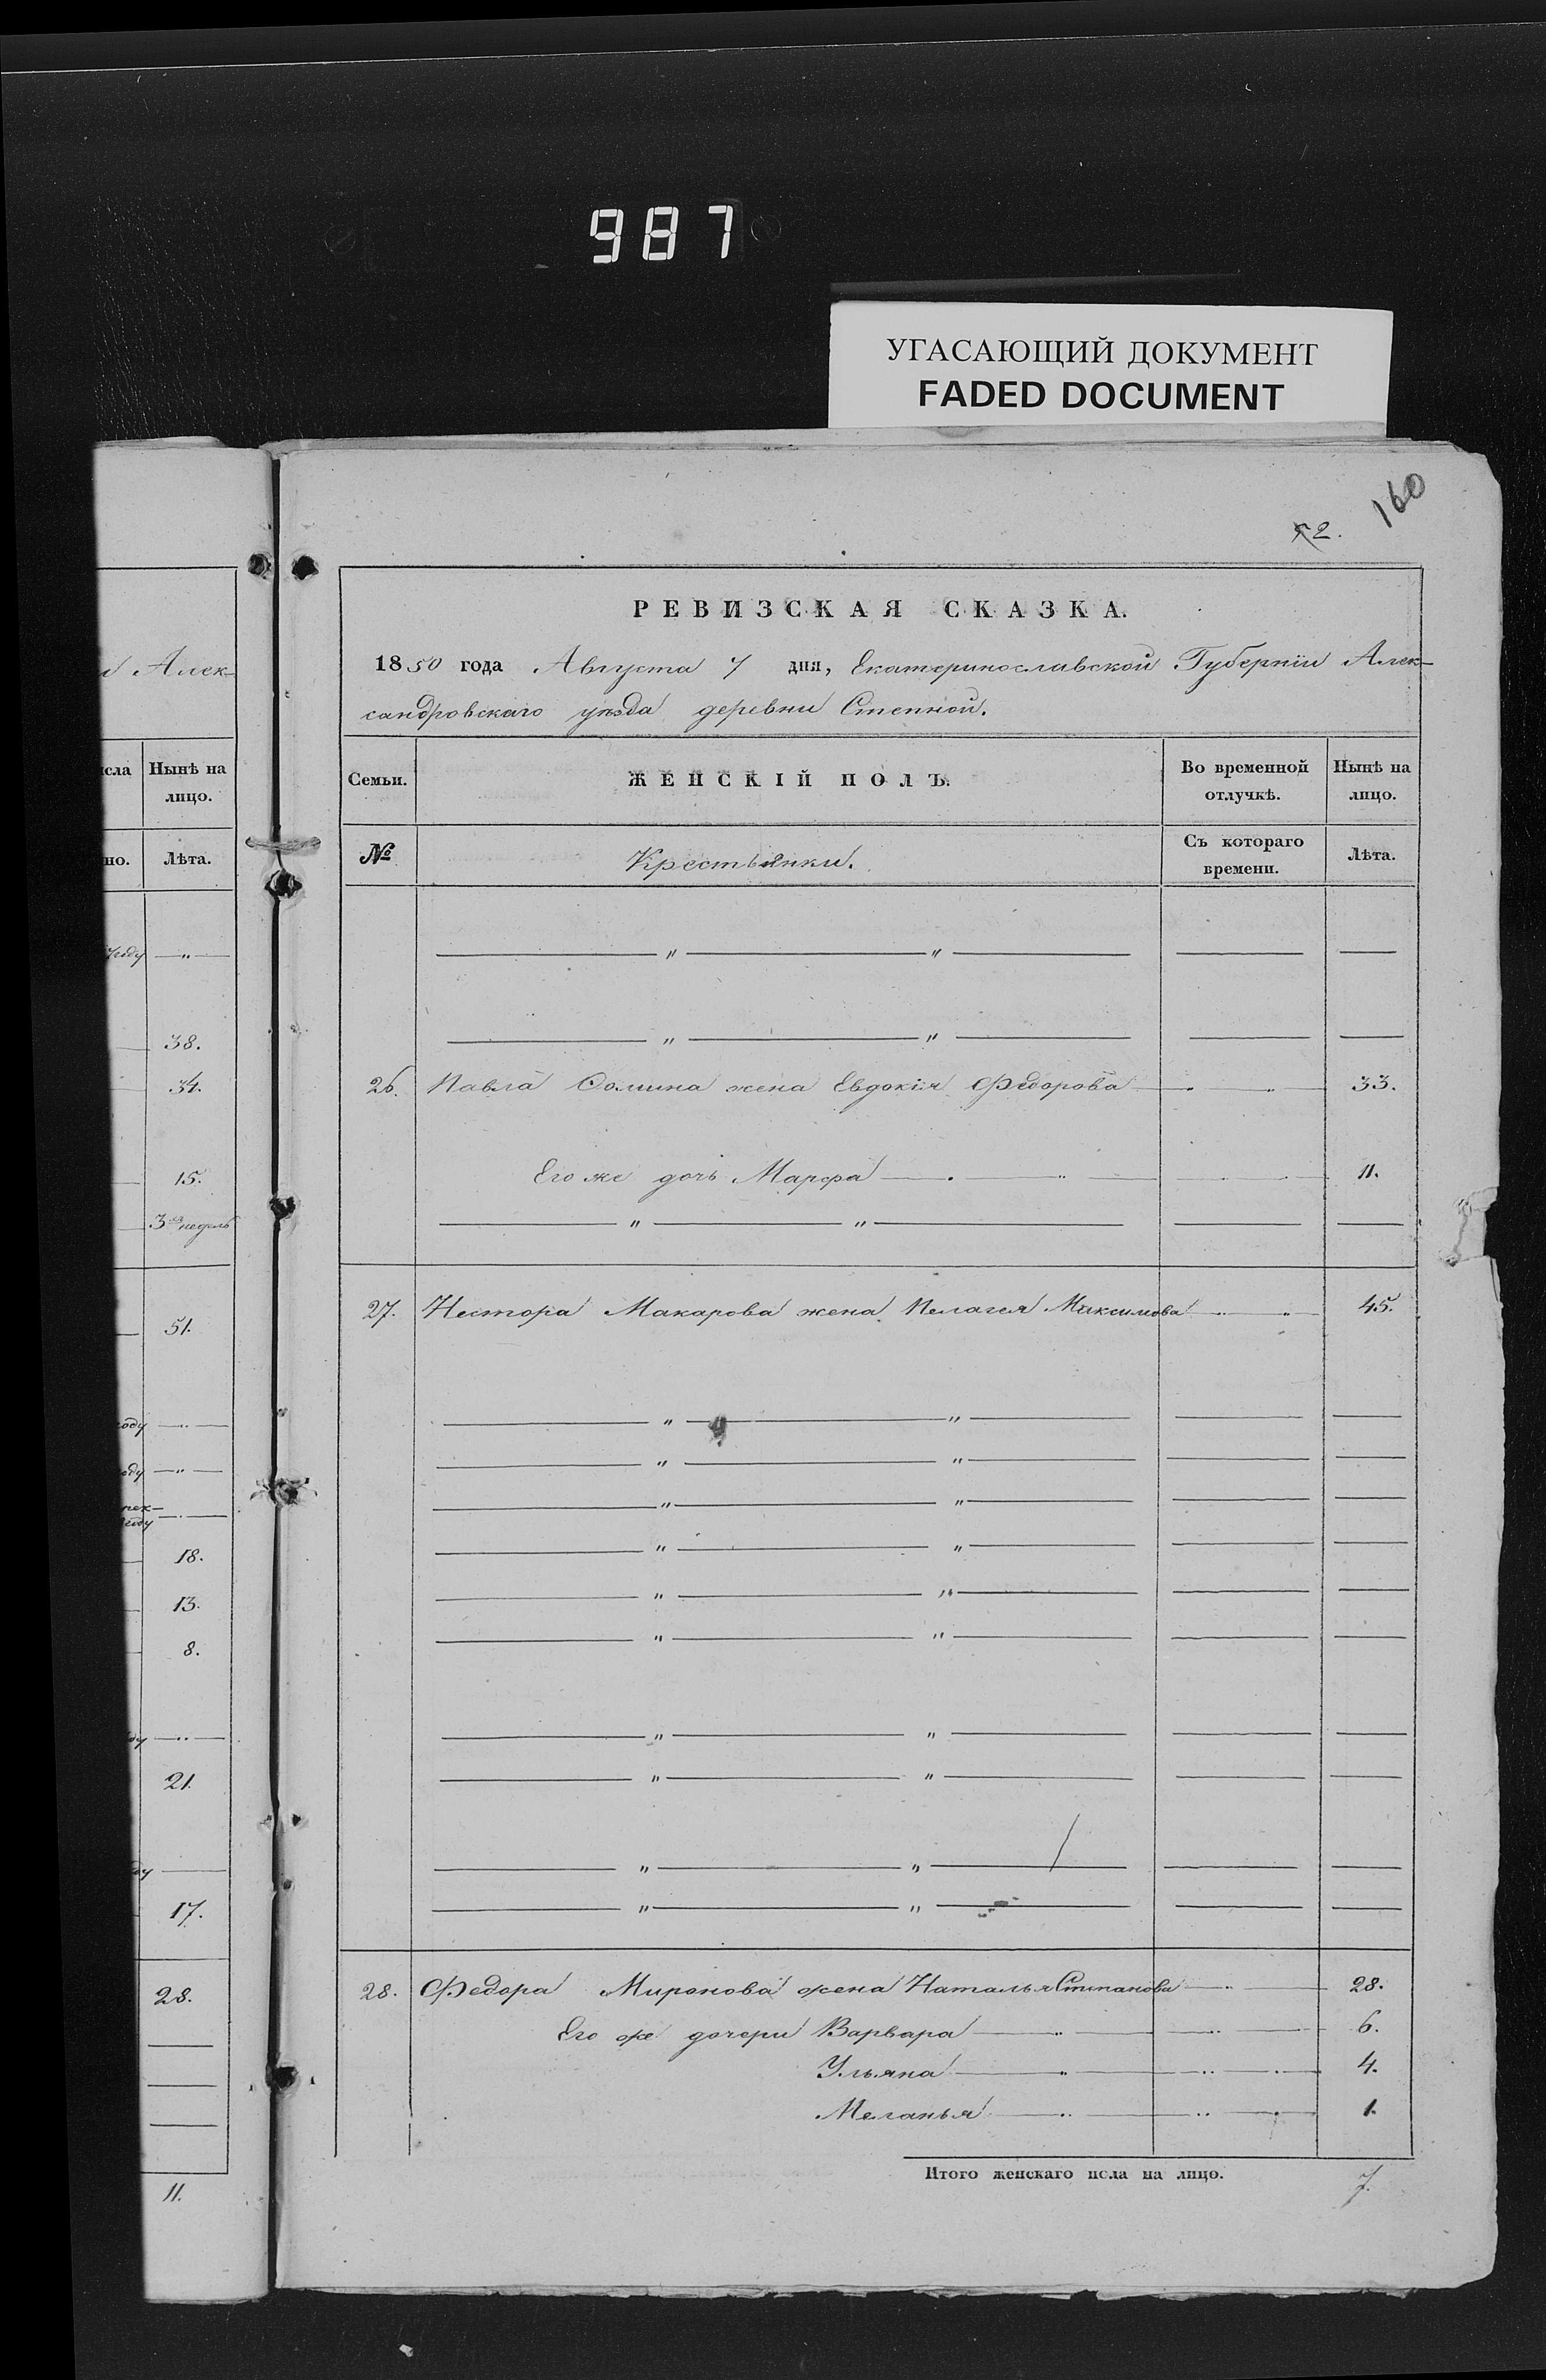 987
УГАСАЮЩИЙ ДОКУМЕНТ
FADED DOCUMENT
160
52.
РЕВИЗСКАЯ СКАЗКА.
1850 года Августа 7 дня, Екатеринославской Губернiи Алек-
сандровскаго уѣзда деревни Степной.
Семьи. ЖЕНСКIЙ ПОЛЪ. Во временной отлучкѣ. Нынѣ на лицо.
№ Крестьянки. Съ котораго времени. Лѣта.
26. Павла Фомина жена Евдокiя Федорова 33.
Его же дочь Марфа 11.
27. Нестора Макарова жена Пелагея Максимова 45.
28. Федора Миронова жена Наталья Степанова 28.
Его же дочери Варвара 6.
Ульяна 4.
Меланья 1.
Итого женскаго пола на лицо. 7.
Алек-
Нынѣ на
лицо.
но. Лѣта.
38.
34.
15.
3 недель
51.
18.
13.
8.
21.
17.
28.
11.